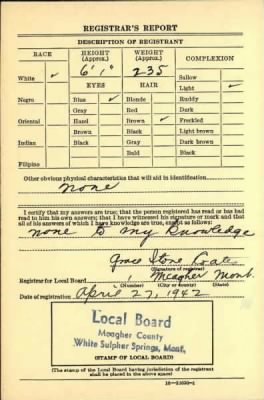 REGISTRAR'S REPORT
DESCRIPTION OF REGISTRANT
RACE HEIGHT (Approx.) WEIGHT (Approx.) COMPLEXION
White ✓ 6' 1" 235 Sallow
EYES HAIR Light ✓
Negro Blue ✓ Blonde Ruddy
Gray Red Dark
Oriental Hazel Brown ✓ Freckled
Brown Black Light brown
Indian Black Gray Dark brown
Bald Black
Filipino
Other obvious physical characteristics that will aid in identification
none
I certify that my answers are true; that the person registered has read or has had
read to him his own answers; that I have witnessed his signature or mark and that
all of his answers of which I have knowledge are true, except as follows:
none to my knowledge
Grace Stone Coates
(Signature of registrar)
Registrar for Local Board Meagher Mont.
(Number) (City or county) (State)
Date of registration April 27, 1942
Local Board
Meagher County
White Sulphur Springs, Mont.
(STAMP OF LOCAL BOARD)
(The stamp of the Local Board having jurisdiction of the registrant
shall be placed in the above space)